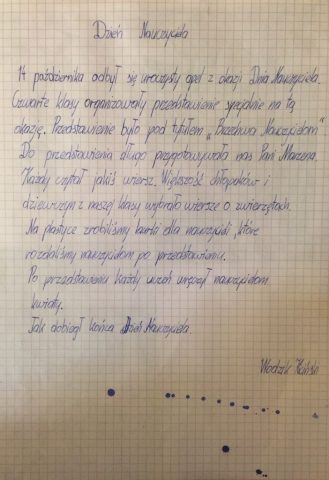 Dzień Nauczyciela
14 października odbył się uroczysty apel z okazji Dnia Nauczyciela.
Czwarte klasy organizowały przedstawienie specjalnie na tą
okazję. Przedstawienie było pod tytułem „Brzechwa Nauczycielom"
Do przedstawienia długo przygotowywała nas Pani Marzena.
Każdy czytał jakiś wiersz. Większość chłopaków i
dziewczyn z naszej klasy wybrało wiersze o zwierzętach.
Na plastyce zrobiliśmy laurki dla nauczycieli, które
rozdaliśmy nauczycielom po przedstawieniu.
Po przedstawieniu każdy uczeń wręczył nauczycielom
kwiaty.
Tak dobiegł końca Dzień Nauczyciela.